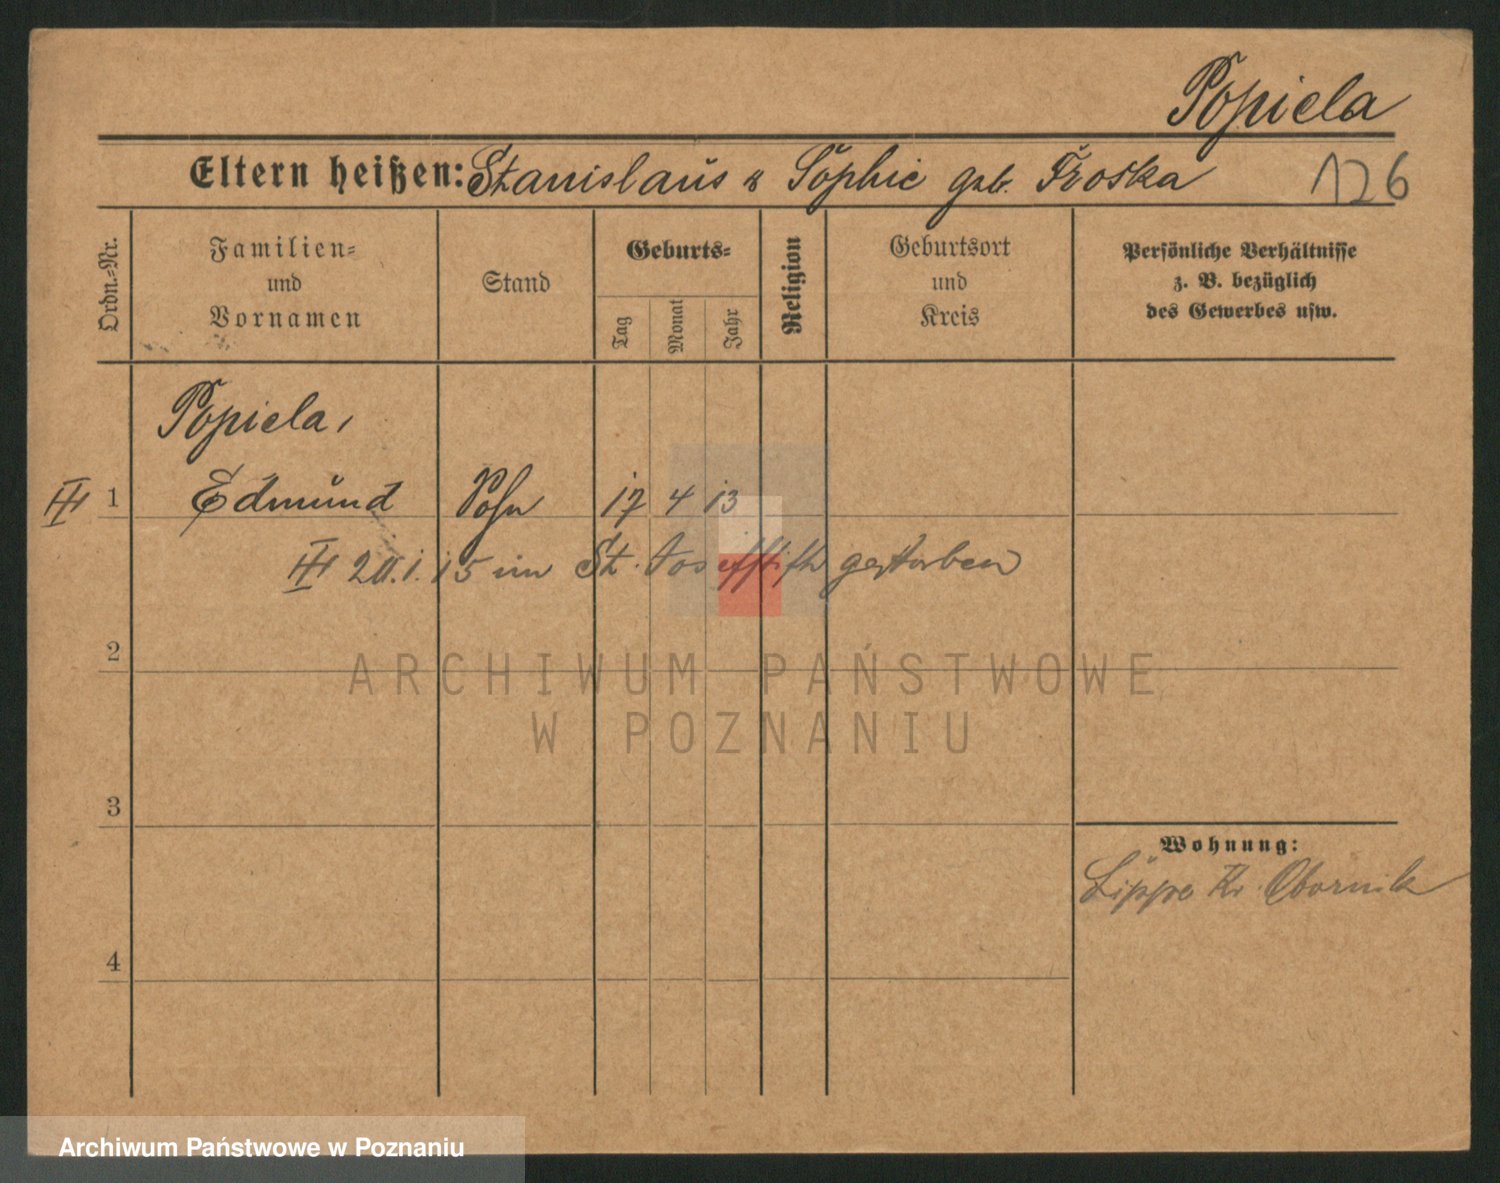 Popiela
Eltern heißen: Stanislaus & Sophie geb. Troska
126
Ordn.=Nr.
Familien=
und
Vornamen
Stand
Geburts=
Tag
Monat
Jahr
Religion
Geburtsort
und
Kreis
Persönliche Verhältnisse
z. B. bezüglich
des Gewerbes usw.
Popiela,
1 Edmund Sohn 17 4 13
20.1.15 im St. Josefstift gestorben
2
ARCHIWUM PAŃSTWOWE
W POZNANIU
3
Wohnung:
Lippe Kr. Obornik
4
Archiwum Państwowe w Poznaniu